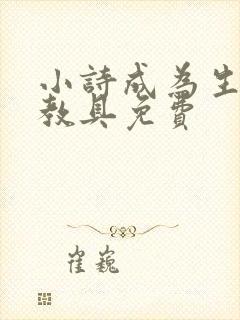 小詩成為生
教具免費
崔巍